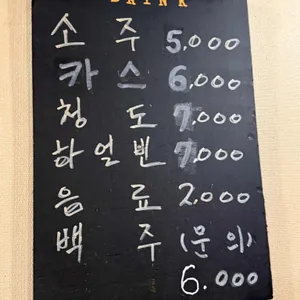 DRINK
소 주 5,000
카 스 6,000
칭 도 7,000
하얼빈 7,000
음 료 2,000
백 주 (문의)
6.000